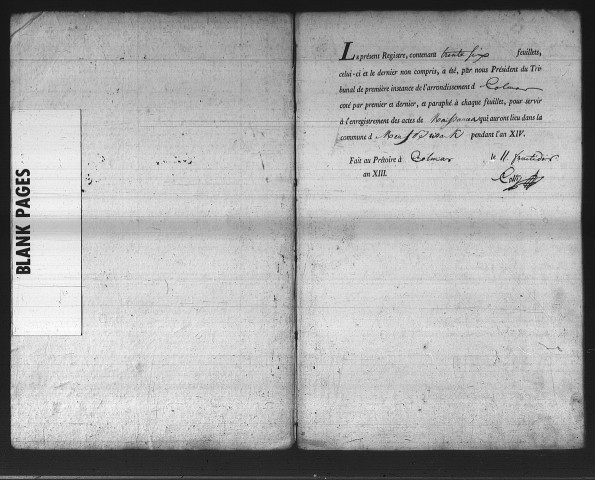 BLANK PAGES
Le présent Registre, contenant trente six feuillets,
celui-ci et le dernier non compris, a été, par nous Président du Tri-
bunal de première instance de l'arrondissement d Colmar
coté par premier et dernier, et paraphé à chaque feuillet, pour servir
à l'enregistrement des actes de Naissances qui auront lieu dans la
commune d Neuf Brisack pendant l'an XIV.
Fait au Prétoire à Colmar le 11 fructidor
an XIII.